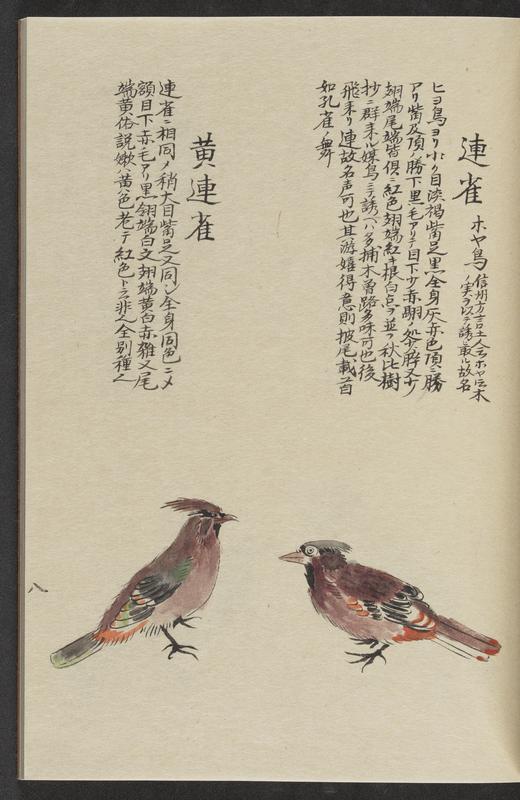 連雀 ホヤ鳥 信州方言土人云ホヤト云木
ノ実ヲ以テ誘取ル故名
ヒヨ鳥ヨリ小ク目淡褐觜足黒全身灰赤色頂ニ勝
アリ觜及頂ノ勝下黒毛アリテ目下少赤
翅端尾端皆倶ニ紅色翅端紅キ根白点アリ並フ秋比樹
抄ニ群来ル媒鳥ニテ誘ヘハ多捕木曽路多味可也後
飛来リ連故名声可也其游嬉得意則披尾載首
如孔雀ノ舞
黄連雀
連雀ニ相同メ稍大目觜足又同シ全身同色ニメ
額目下赤毛アリ黒翎端白文翅端黄白赤雑又尾
端黄俗説嫩ハ黄色老テ紅色トス非人全別種也
八